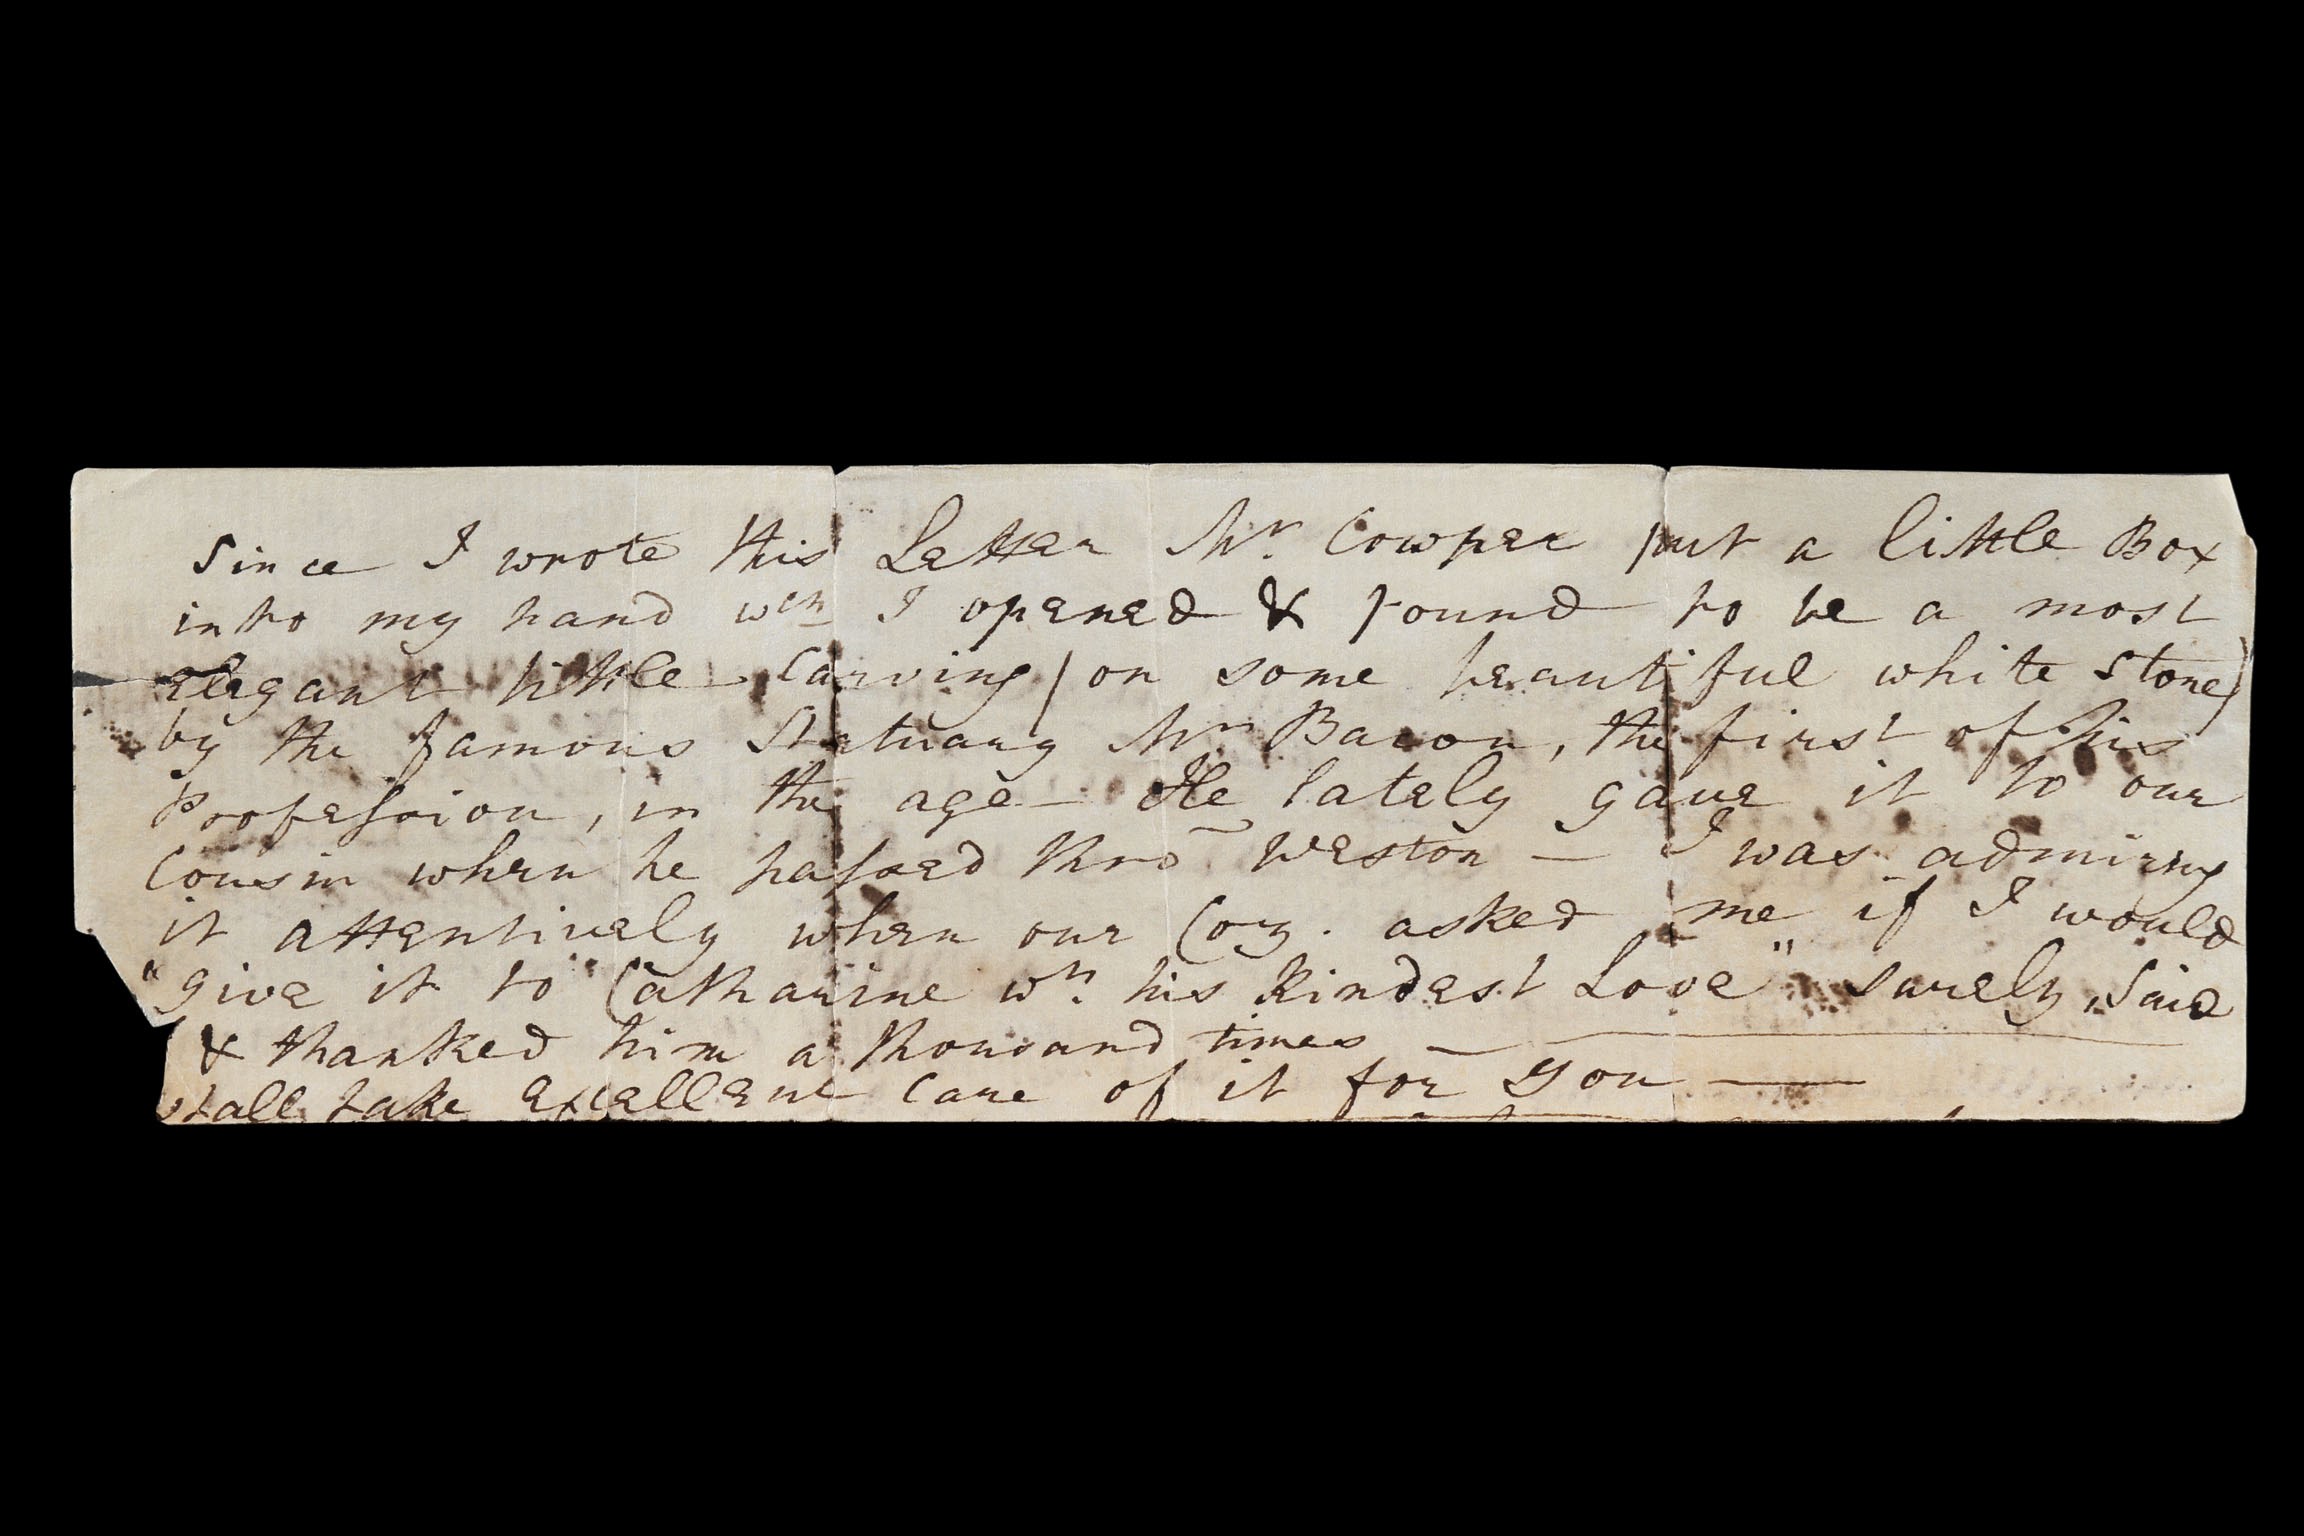 Since I wrote this Letter Mr. Cowper put a little Box
into my hand wch I opened & found to be a most
elegant little Carving (on some beautiful white Stone)
by the famous Statuary Mr Bacon, the first of his
Profession, in the age — He lately gave it to our
Cousin when he passed thro Weston — I was admiring
it attentively when our Coz. asked me if I would
"give it to Catharine wth. his Kindest Love" surely, Said
& thanked him a thousand times —
shall take excellent care of it for you —